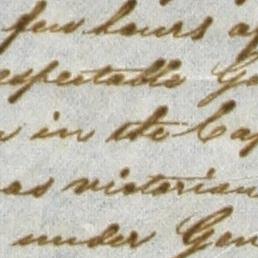 few hours a
espectable Ge
in the Cap
as victorious
under Gen